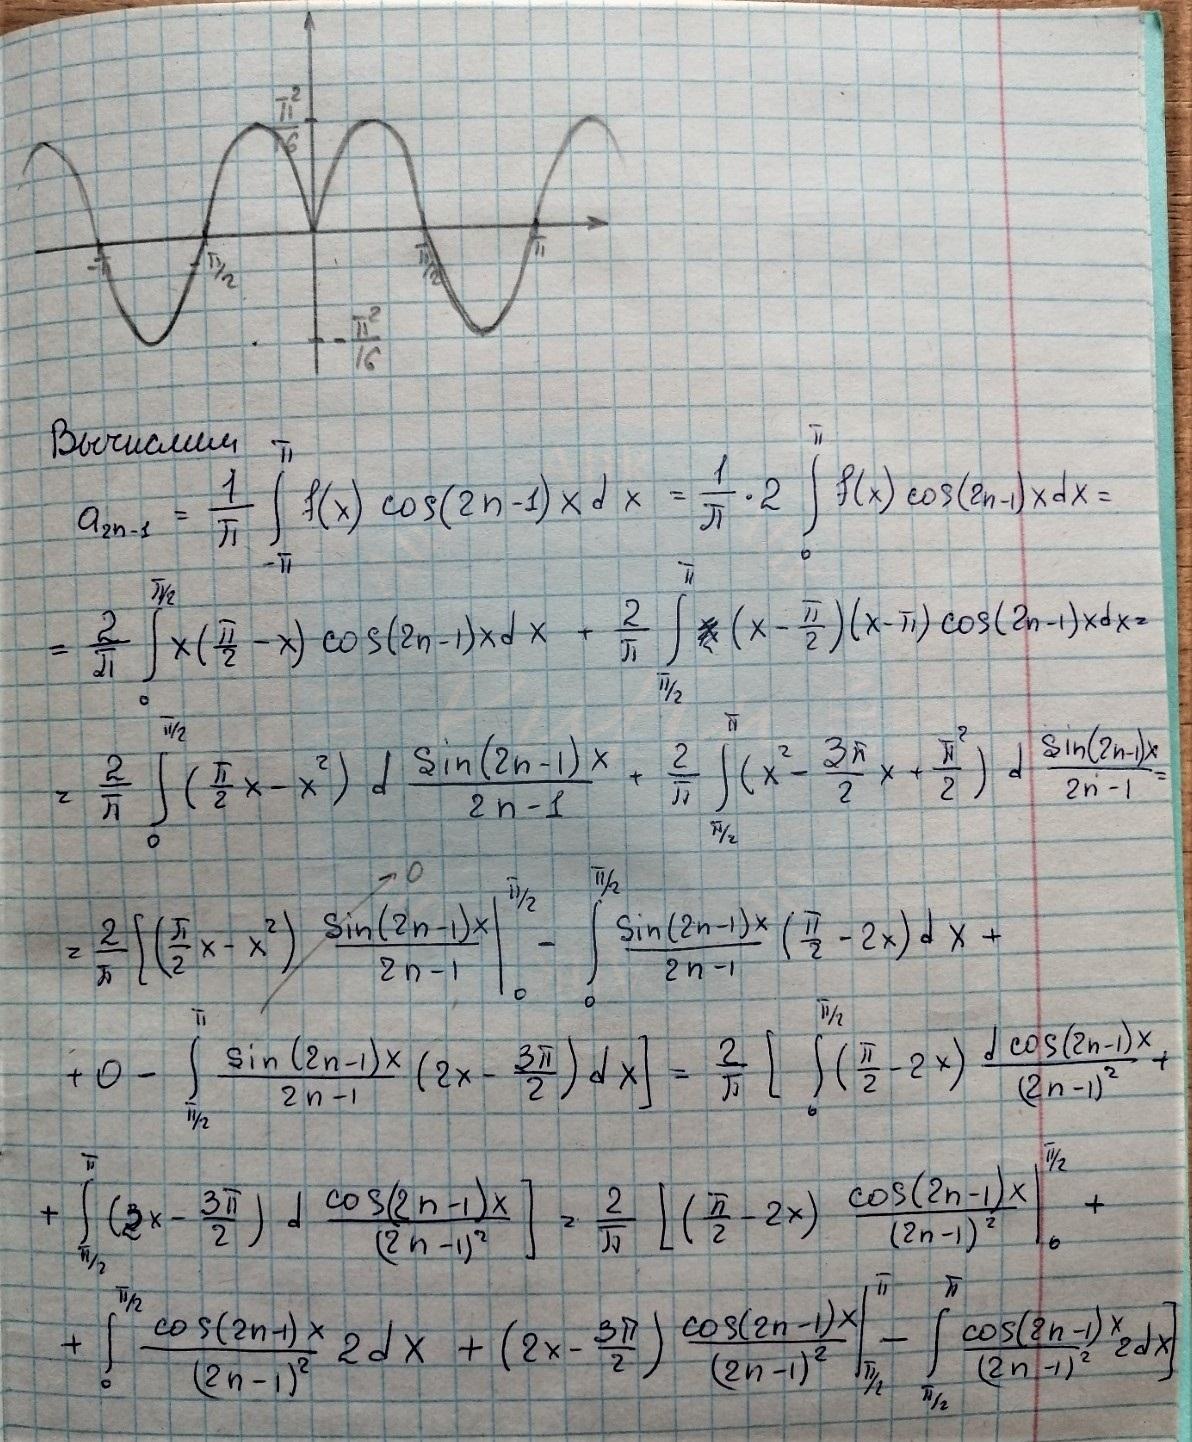 π²/6
-π -π/2 π/2 π
-π²/16
Вычислим
a_{2n-1} = 1/π ∫_{-π}^{π} f(x) cos(2n-1)x dx = 1/π · 2 ∫_0^π f(x) cos(2n-1)x dx =
= 2/π ∫_0^{π/2} x(π/2 - x) cos(2n-1)x dx + 2/π ∫_{π/2}^π (x - π/2)(x-π) cos(2n-1)x dx =
= 2/π ∫_0^{π/2} (π/2 x - x²) d sin(2n-1)x/(2n-1) + 2/π ∫_{π/2}^π (x² - 3π/2 x + π²/2) d sin(2n-1)x/(2n-1) =
= 2/π [(π/2 x - x²) sin(2n-1)x/(2n-1) |_0^{π/2} → 0 - ∫_0^{π/2} sin(2n-1)x/(2n-1) (π/2 - 2x) dx +
+ 0 - ∫_{π/2}^π sin(2n-1)x/(2n-1) (2x - 3π/2) dx] = 2/π [ ∫_0^{π/2} (π/2 - 2x) d cos(2n-1)x/(2n-1)² +
+ ∫_{π/2}^π (2x - 3π/2) d cos(2n-1)x/(2n-1)² ] = 2/π [(π/2 - 2x) cos(2n-1)x/(2n-1)² |_0^{π/2} +
+ ∫_0^{π/2} cos(2n-1)x/(2n-1)² 2dx + (2x - 3π/2) cos(2n-1)x/(2n-1)² |_{π/2}^π - ∫_{π/2}^π cos(2n-1)x/(2n-1)² 2dx]